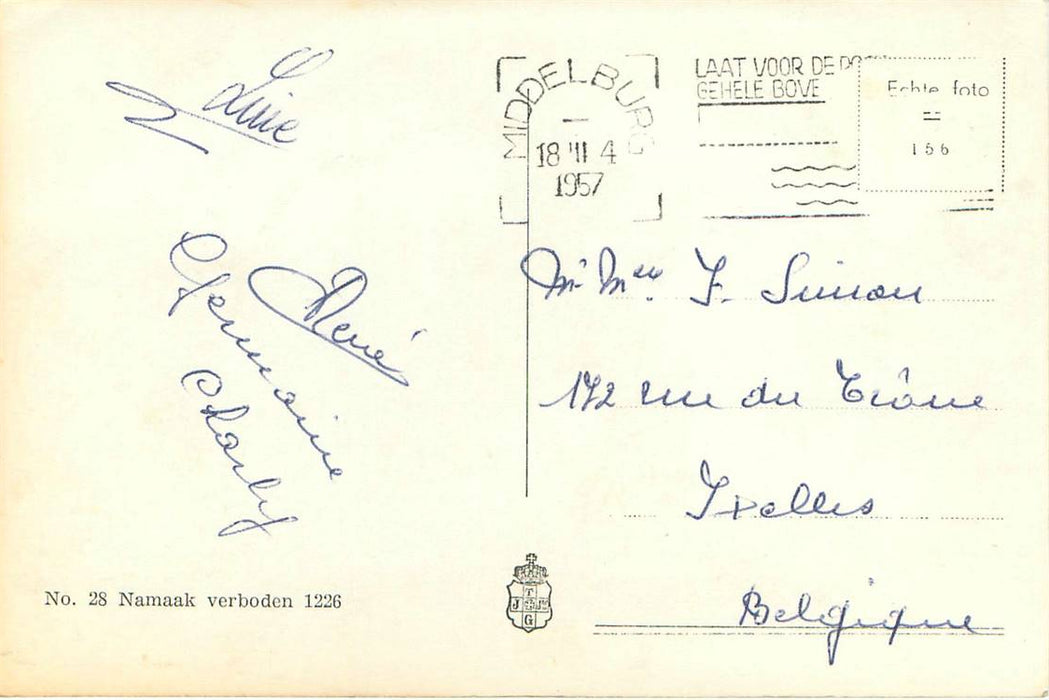 Line
René
Germaine
Charly
No. 28 Namaak verboden 1226
MIDDELBURG
18 III 4
1957
LAAT VOOR DE
GEHELE BOVE
Echte foto
=
156
T
J M
G
Mr Mme F. Simon
172 rue du Trône
Ixelles
Belgique